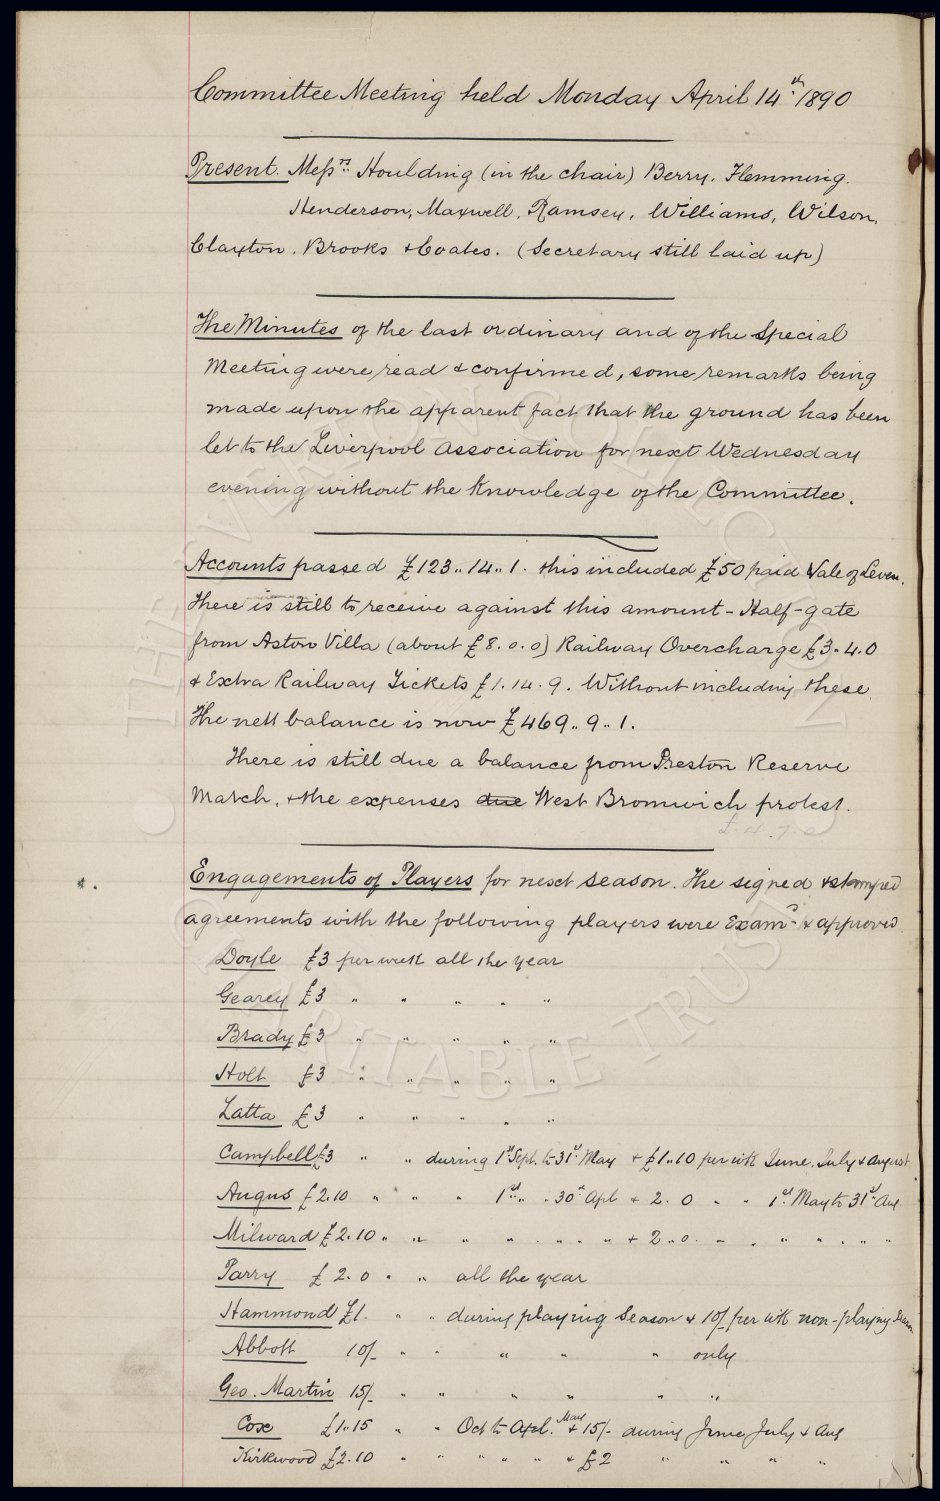 Committee Meeting held Monday April 14th 1890
Present. Messrs Houlding (in the chair) Berry. Flemming.
Henderson, Maxwell, Ramsey, Williams, Wilson,
Clayton. Brooks + Coates. (Secretary still laid up)
The Minutes of the last ordinary and of the Special
Meeting were read & confirmed, some remarks being
made upon the apparent fact that the ground has been
let to the Liverpool Association for next Wednesday
evening without the knowledge of the Committee.
Accounts passed £123..14..1. this included £50 paid Vale of Leven.
There is still to receive against this amount - Half-gate
from Aston Villa (about £8.0.0) Railway Overcharge £3.4.0
& Extra Railway Tickets £1.14.9. Without including these
The nett balance is now £469..9..1.
There is still due a balance from Preston Reserve
Match, + the expenses due West Bromwich protest.
£4.7.0
Engagements of Players for next season. The signed & stamped
agreements with the following players were Examd & approved
Doyle £3 per week all the year
Gearey £3 " " " " "
Brady £3 " " " " "
Holt £3 " " " " "
Latta £3 " " " " "
Campbell £3 " " during 1st Sept. to 31st May + £1..10 per wk June, July & August
Angus £2.10 " " " 1st " " 30th Apl + 2.0 " " 1st May to 31st Aug
Milward £2.10 " " " " " " " " + 2..0 " " " " " " "
Parry £2.0 " " all the year
Hammond £1. " " during playing Season & 10/- per wk non-playing Season
Abbott 10/- " " " " " only
Geo. Martin 15/- " " " " " "
Cox £1.15 " " Oct to Apl. May & 15/- during June July & Aug
Kirkwood £2.10 " " " " " & £2 " " " "
THE EVERTON COLLECTION
CHARITABLE TRUST